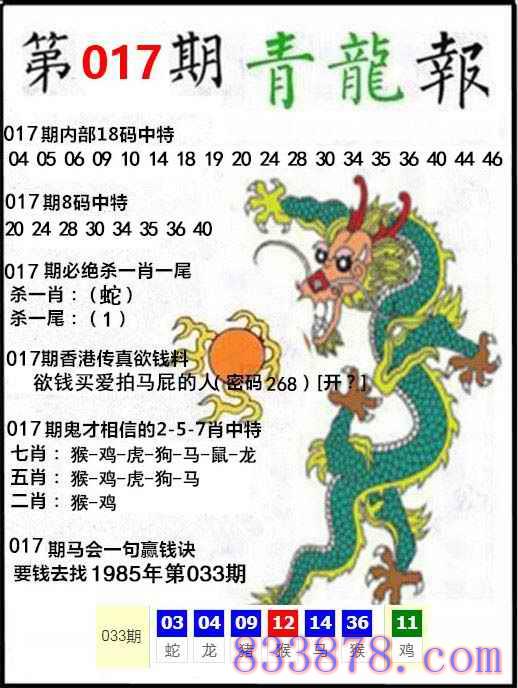 第017期青龍報
017期内部18码中特
04 05 06 09 10 14 18 19 20 24 28 30 34 35 36 40 44 46
017期8码中特
20 24 28 30 34 35 36 40
017期必绝杀一肖一尾
杀一肖：（蛇）
杀一尾：（1）
017期香港传真欲钱料
欲钱买爱拍马屁的人（密码268）[开？]
017期鬼才相信的2-5-7肖中特
七肖：猴-鸡-虎-狗-马-鼠-龙
五肖：猴-鸡-虎-狗-马
二肖：猴-鸡
017期马会一句赢钱诀
要钱去找1985年第033期
033期 03 04 09 12 14 36 11
蛇 龙 猪 猴 马 猴 鸡
833878.com